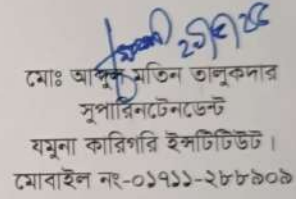 মোঃ আব্দুল মতিন তালুকদার
সুপারিনটেনডেন্ট
যমুনা কারিগরি ইন্সটিটিউট।
মোবাইল নং-০১৭১১-২৮৮৯০৯